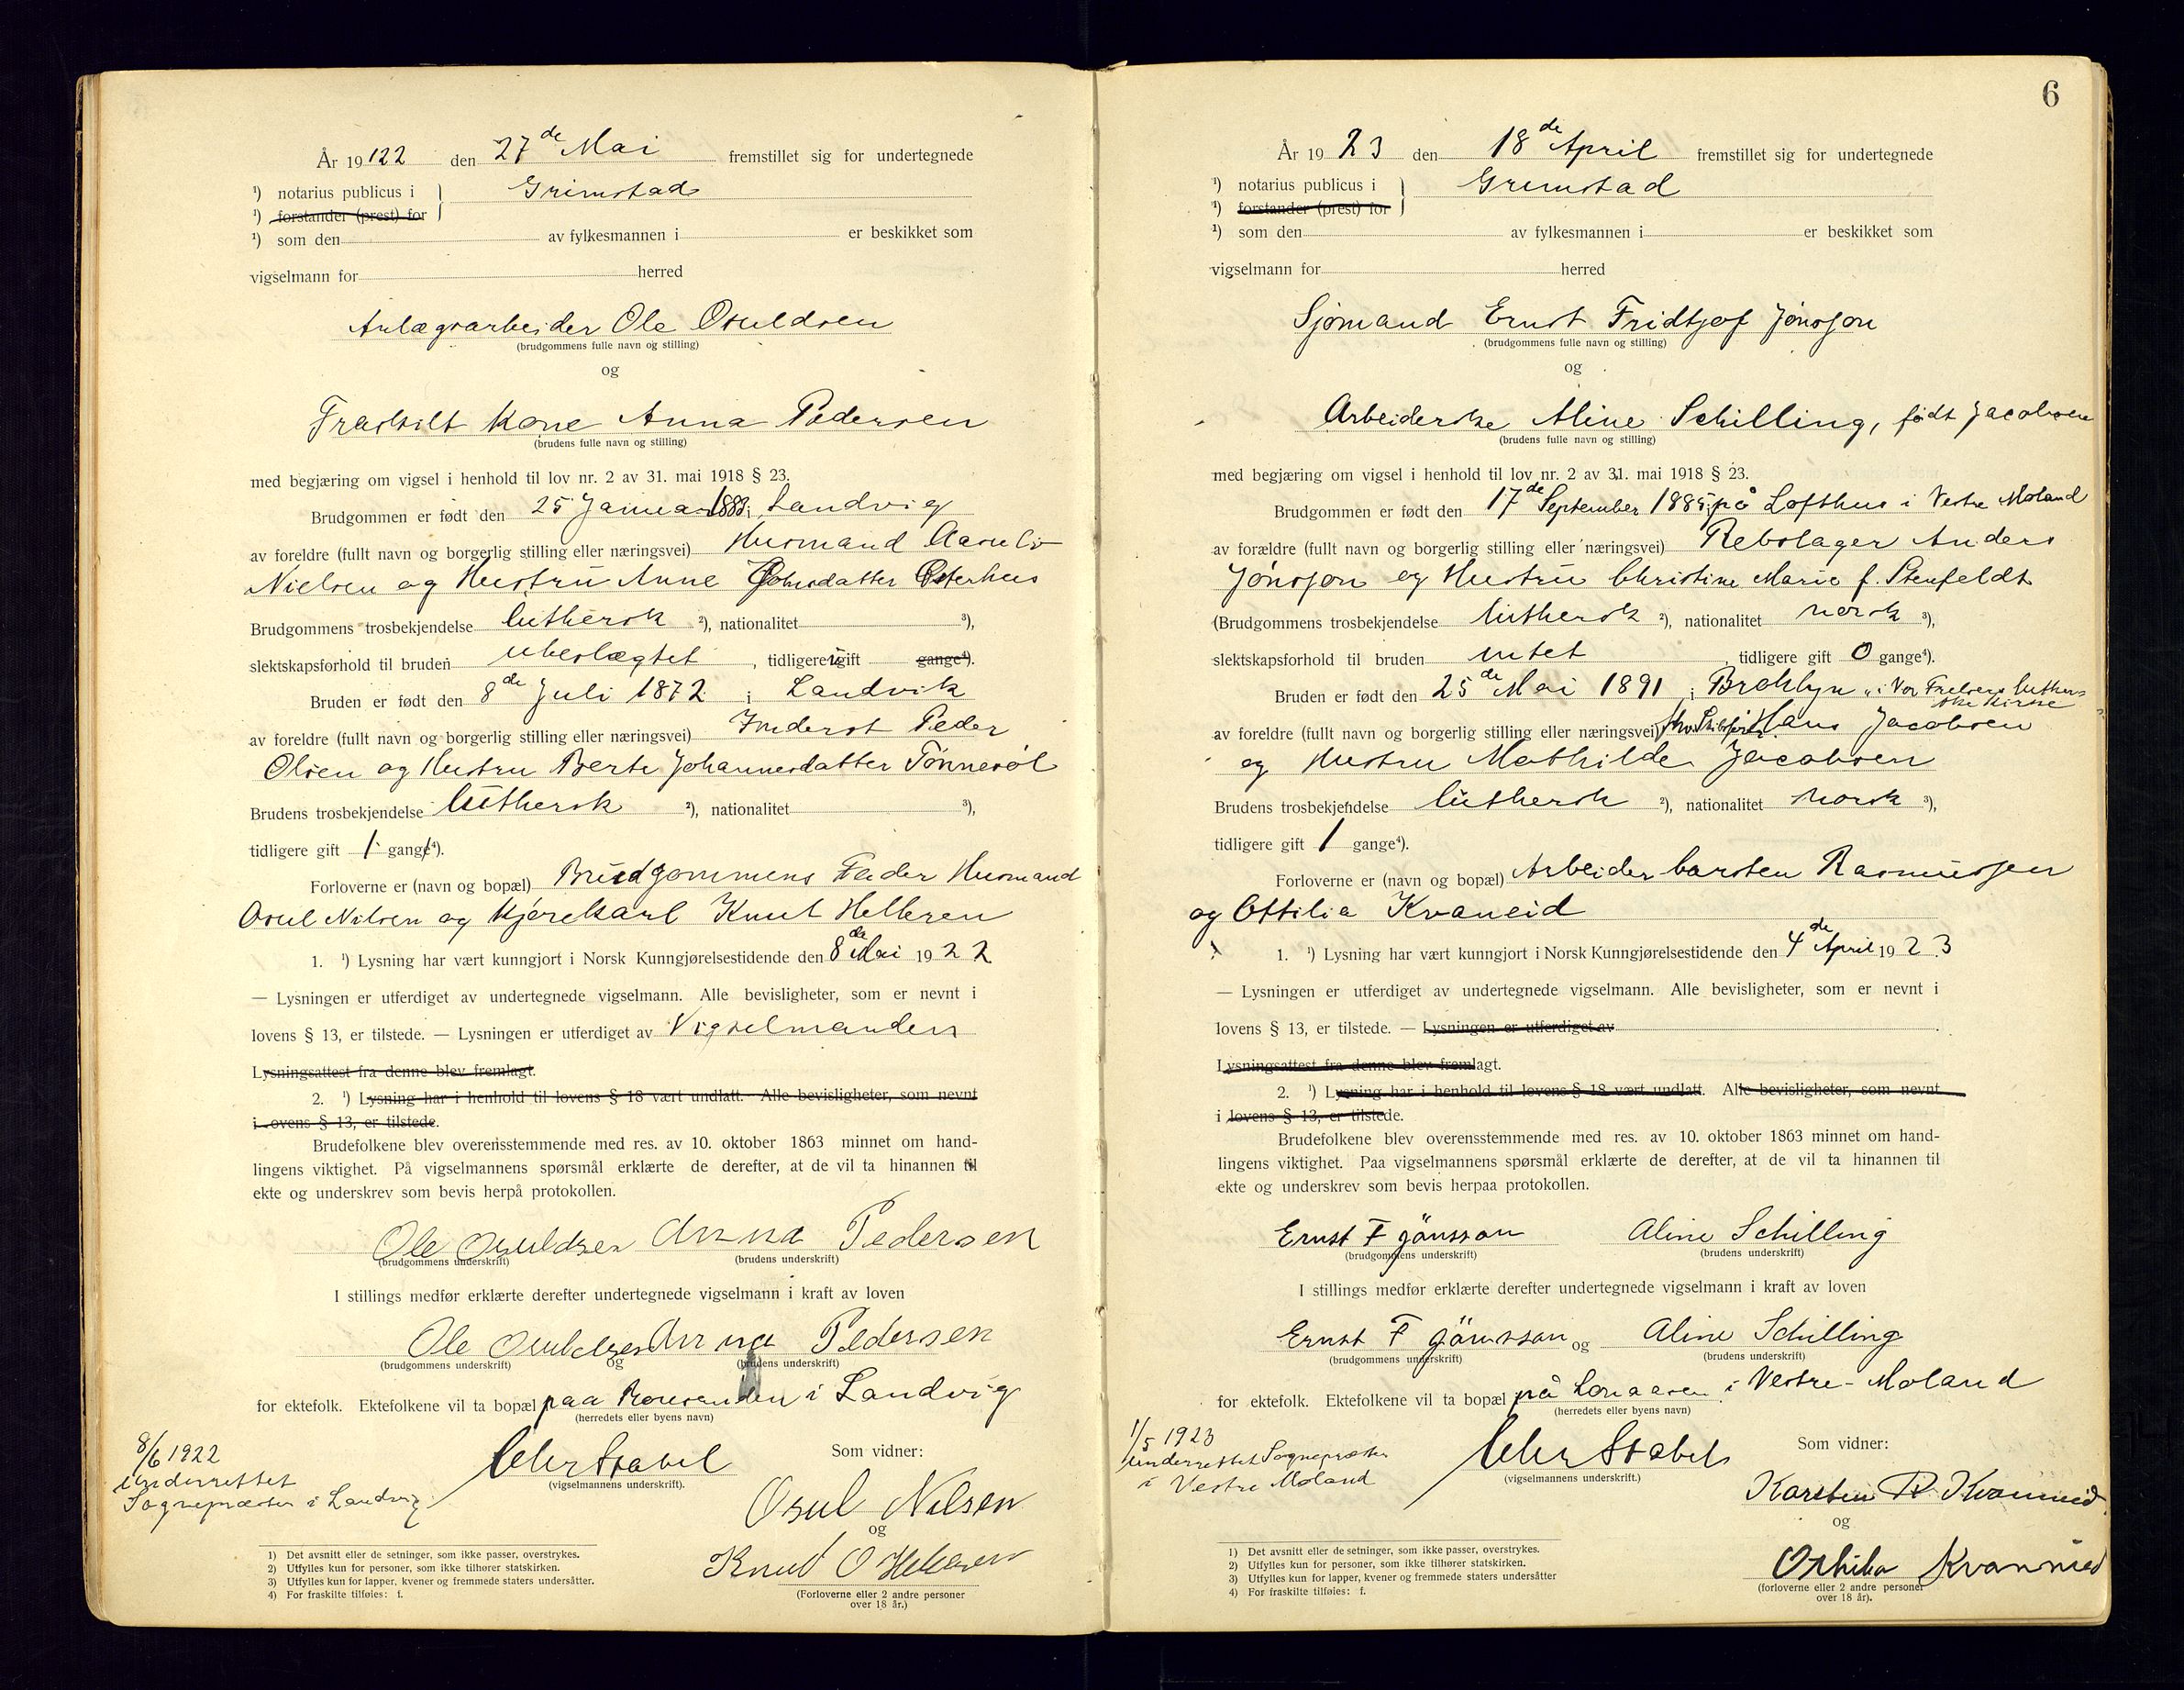 År 19122 den 27de Mai fremstillet sig for undertegnede
¹) notarius publicus i } Grimstad
¹) forstander (prest) for
¹) som den av fylkesmannen i er beskikket som
vigselmann for herred
Anlægsarbeider Ole Osuldsen
(brudgommens fulle navn og stilling)
og
Fraskilt Kone Anna Pedersen
(brudens fulle navn og stilling)
med begjæring om vigsel i henhold til lov nr. 2 av 31. mai 1918 § 23.
Brudgommen er født den 25 Januar 1883 i Landvig
av foreldre (fullt navn og borgerlig stilling eller næringsvei) Husmand
Nielsen og Hustru Anne Johsdatter Østerhus
Brudgommens trosbekjendelse luthersk ²), nationalitet ³),
slektskapsforhold til bruden ubeslægtet, tidligere ugift gange⁴).
Bruden er født den 8de Juli 1872 i Landvik
av foreldre (fullt navn og borgerlig stilling eller næringsvei) Inderst Peder
Olsen og Hustru Berte Johannesdatter Tønnesøl
Brudens trosbekjendelse luthersk ²), nationalitet ³),
tidligere gift 1 gange⁴).
Forloverne er (navn og bopæl) Brudgommens Fader Husmand
Osul Nilsen og Kjørekarl Knut Helleren
1. ¹) Lysning har vært kunngjort i Norsk Kunngjørelsestidende den 8de Mai 1922
— Lysningen er utferdiget av undertegnede vigselmann. Alle bevisligheter, som er nevnt i
lovens § 13, er tilstede. — Lysningen er utferdiget av Vigselmanden
Lysningsattest fra denne blev fremlagt.
2. ¹) Lysning har i henhold til lovens § 18 vært undlatt. Alle bevisligheter, som nevnt
i lovens § 13, er tilstede.
Brudefolkene blev overensstemmende med res. av 10. oktober 1863 minnet om hand-
lingens viktighet. På vigselmannens spørsmål erklærte de derefter, at de vil ta hinannen til
ekte og underskrev som bevis herpå protokollen.
Ole Osuldsen Anna Pedersen
(brudgommens underskrift) (brudens underskrift)
I stillings medfør erklærte derefter undertegnede vigselmann i kraft av loven
Ole Osuldsen og Anna Pedersen
(brudgommens underskrift) (brudens underskrift)
for ektefolk. Ektefolkene vil ta bopæl paa i Landvig
(herredets eller byens navn)
8/6 1922
Underrettet
Sognepræsten i Landvig
Chr Stabel
(vigselmannens underskrift).
Som vidner:
Osul Nilsen
og
Knud O Helleren
(Forloverne eller 2 andre personer
over 18 år.)
1) Det avsnitt eller de setninger, som ikke passer, overstrykes.
2) Utfylles kun for personer, som ikke tilhører statskirken.
3) Utfylles kun for lapper, kvener og fremmede staters undersåtter.
4) For fraskilte tilføies: f.
6
År 1923 den 18de April fremstillet sig for undertegnede
¹) notarius publicus i } Grimstad
¹) forstander (prest) for
¹) som den av fylkesmannen i er beskikket som
vigselmann for herred
Sjømand Ernst Fridtjof Jönsson
(brudgommens fulle navn og stilling)
og
Arbeiderske Aline Schilling, født Jacobsen
(brudens fulle navn og stilling)
med begjæring om vigsel i henhold til lov nr. 2 av 31. mai 1918 § 23.
Brudgommen er født den 17de September 1885 på Lofthus i Vestre Moland
av forældre (fullt navn og borgerlig stilling eller næringsvei) Rebslager Anders
Jönsson og Hustru Christine Marie f. Stenfeldt
(Brudgommens trosbekjendelse luthersk ²), nationalitet norsk ³),
slektskapsforhold til bruden intet, tidligere gift 0 gange⁴).
Bruden er født den 25de Mai 1891 i Broklyn "i Vor Frelsers luther-
ske Kirke
av foreldre (fullt navn og borgerlig stilling eller næringsvei) Hans Jacobsen
og Hustru Mathilde Jacobsen
Brudens trosbekjendelse luthersk ²), nationalitet norsk ³),
tidligere gift 1 gange⁴).
Forloverne er (navn og bopæl) Arbeider Carsten Rasmussen
og Ottilia Kvaneid
1. ¹) Lysning har vært kunngjort i Norsk Kunngjørelsestidende den 4de April 1923
— Lysningen er utferdiget av undertegnede vigselmann. Alle bevisligheter, som er nevnt i
lovens § 13, er tilstede. — Lysningen er utferdiget av
Lysningsattest fra denne blev fremlagt.
2. ¹) Lysning har i henhold til lovens § 18 vært undlatt. Alle bevisligheter, som nevnt
i lovens § 13, er tilstede.
Brudefolkene blev overensstemmende med res. av 10. oktober 1863 minnet om hand-
lingens viktighet. Paa vigselmannens spørsmål erklærte de derefter, at de vil ta hinannen til
ekte og underskrev som bevis herpaa protokollen.
Ernst F Jönsson Aline Schilling
(brudgommens underskrift) (brudens underskrift)
I stillings medfør erklærte derefter undertegnede vigselmann i kraft av loven
Ernst F Jönsson og Aline Schilling
(brudgommens underskrift) (brudens underskrift)
for ektefolk. Ektefolkene vil ta bopæl på i Vestre-Moland
(herredets eller byens navn)
1/5 1923
underrettet Sognepræsten
i Vestre Moland
Chr Stabel
(vigselmannens underskrift.)
Som vidner:
Karsten R Kvanneid
og
Kvanneid
(forloverne eller 2 andre personer
over 18 år).
1) Det avsnitt eller de setninger, som ikke passer, overstrykes.
2) Utfylles kun for personer, som ikke tilhører statskirken.
3) Utfylles kun for lapper, kvener og fremmede staters undersåtter
4) For fraskilte tilføies: f.